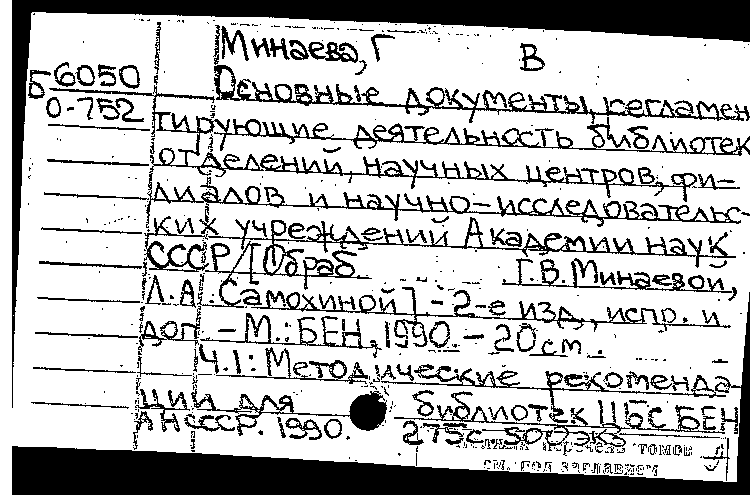 Минаева, Г В
Б 6050
0-752
Основные документы, регламен
тирующие деятельность библиотек
отделений, научных центров, фи-
лиалов и научно-исследовательс-
ких учреждений Академии наук
СССР / [Обраб. Г.В. Минаевой,
Л.А. Самохиной]. - 2-е изд., испр. и
доп. - М.: БЕН, 1990. - 20 см.
Ч.1: Методические рекоменда-
ции для библиотек ЦБС БЕН
АН СССР. 1990. 275с. 500экз
перечень томов
см. под заглавием